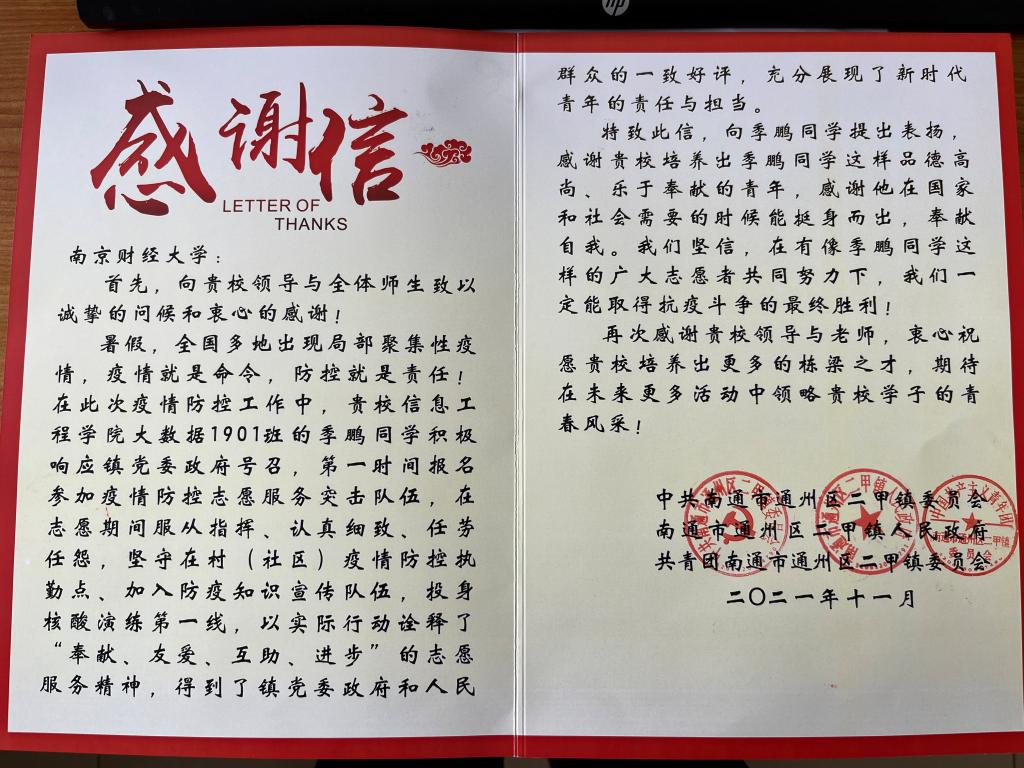 hp
感谢信
LETTER OF
THANKS
南京财经大学：
首先，向贵校领导与全体师生致以
诚挚的问候和衷心的感谢！
暑假，全国多地出现局部聚集性疫
情，疫情就是命令，防控就是责任！
在此次疫情防控工作中，贵校信息工
程学院大数据1901班的季鹏同学积极
响应镇党委政府号召，第一时间报名
参加疫情防控志愿服务突击队伍，在
志愿期间服从指挥、认真细致、任劳
任怨，坚守在村（社区）疫情防控执
勤点、加入防疫知识宣传队伍，投身
核酸演练第一线，以实际行动诠释了
“奉献、友爱、互助、进步”的志愿
服务精神，得到了镇党委政府和人民
群众的一致好评，充分展现了新时代
青年的责任与担当。
特致此信，向季鹏同学提出表扬，
感谢贵校培养出季鹏同学这样品德高
尚、乐于奉献的青年，感谢他在国家
和社会需要的时候能挺身而出，奉献
自我。我们坚信，在有像季鹏同学这
样的广大志愿者共同努力下，我们一
定能取得抗疫斗争的最终胜利！
再次感谢贵校领导与老师，衷心祝
愿贵校培养出更多的栋梁之才，期待
在未来更多活动中领略贵校学子的青
春风采！
中共南通市通州区二甲镇委员会
南通市通州区二甲镇人民政府
共青团南通市通州区二甲镇委员会
二〇二一年十一月
中国共产主义青年团
南通市通州区二甲镇
委员会